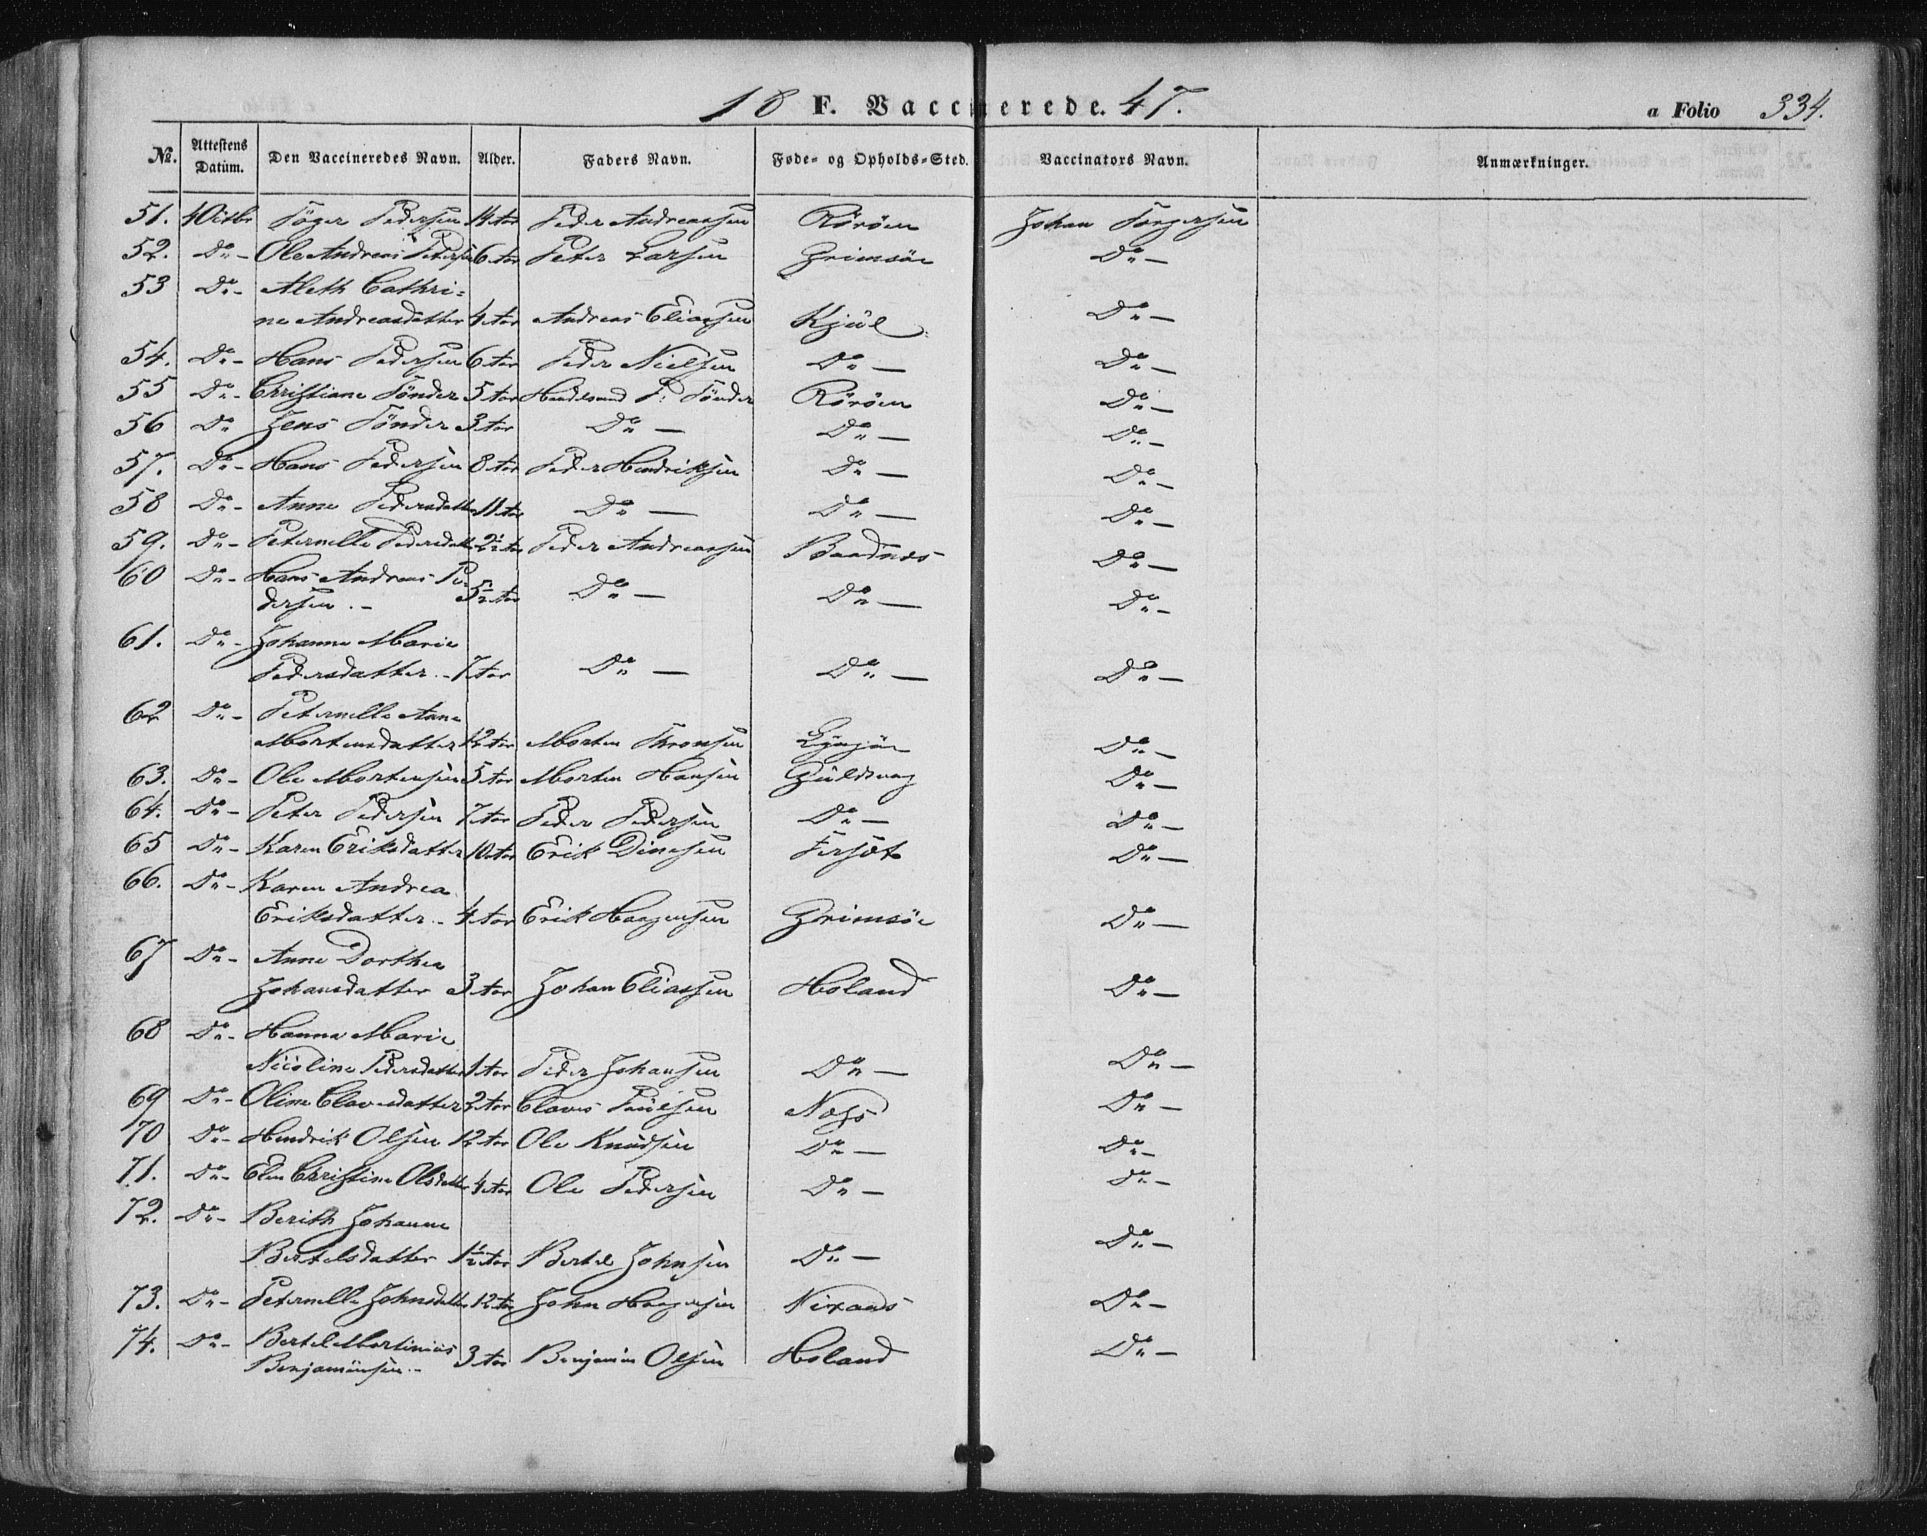 18 F. Vaccinerede. 47. a Folio 334.
No. Attestens Datum. Den Vaccineredes Navn. Alder. Faders Navn. Føde- og Opholds-Sted. Vaccinators Navn. Anmærkninger.
51. 4 Octbr Töger Pedersen Peder Andreassen Rörøen Johan Torgersen
52. Do - Ole Andreas Petersen 6 Aar Peter Larsen Grimsöe Do -
53 Do - Aleth Cathri=
ne Andreasdatter 4 Aar Andreas Eliassen Kjül Do -
54. Do - Hans Pedersen 6 Aar Peder Nielsen Do - Do -
55 Do - Christiane Tönder 5 Aar P. Tönder Rörøen Do -
56 Do Jens Tönder 3 Aar Do - Do - Do -
57. Do - Hans Pedersen 8 Aar Peder Hendriksen Do - Do -
58 Do - Anne Pedersdatter 11 Aar Do - Do - Do -
59. Do - Peternelle Pedersdatter 2½ Aar Peder Andreassen Baadnes Do -
60 Do - Hans Andreas Pe-
dersen. - 5½ Aar Do - Do - Do -
61. Do - Johanna Marie
Pedersdatter. - 7 Aar Do - Do - Do -
62 Do - Peternelle Anne
Mortensdatter 12 Aar Morten Thronsen Do -
63. Do - Ole Mortensen 5 Aar Morten Hansen Güldvaag Do -
64. Do - Peter Pedersen 7 Aar Peder Pedersen Do - Do -
65 Do - Karen Eriksdatter 10 Aar Erik Dinesen Do -
66. Do - Karen Andrea
Eriksdatter. - 4 Aar Erik Haagensen Grimsöe Do -
67 Do - Anne Dorthea
Johansdatter 3 Aar Johan Eliassen Holand Do -
68 Do - Hanna Marie
Nicoline Pedersdatter 1 Aar Peder Johansen Do - Do -
69 Do - Oline Clavesdatter 2 Aar Claves Paülsen Næss Do -
70 Do - Hendrik Olsen 12 Aar Ole Knüdsen Do - Do -
71. Do - Elen Christine Olsdatter 4 Aar Ole Pedersen Do - Do -
72. Do - Berith Johanne
Bertelsdatter 1½ Aar Bertel Johnsen Do - Do -
73. Do - Peternelle Johnsdatter 12 Aar John Haagensen Do -
74. Do - Bertel Martinius
Benjaminsen. - 3 Aar Benjamin Olsen Holand Do -